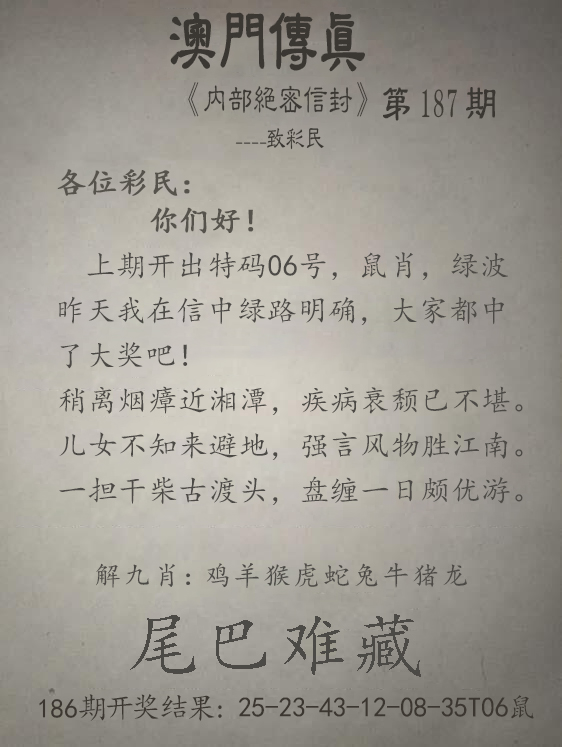 澳門傳真
《内部絕密信封》第187期
----致彩民
各位彩民：
你们好！
上期开出特码06号，鼠肖，绿波
昨天我在信中绿路明确，大家都中
了大奖吧！
稍离烟瘴近湘潭，疾病衰颓已不堪。
儿女不知来避地，强言风物胜江南。
一担干柴古渡头，盘缠一日颇优游。
解九肖：鸡羊猴虎蛇兔牛猪龙
尾巴难藏
186期开奖结果：25-23-43-12-08-35T06鼠